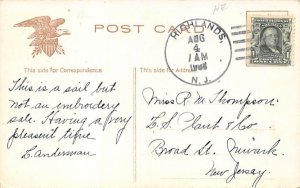 NE
POST CARD
HIGHLANDS,
AUG
4
1 AM
N.J.
This side for Correspondence.
This side for Address.
This is a sail but
not an embroidery
sale. Having a very
pleasent time
L. Anderman
Miss R M. Thompson
L. S. Plaut & Co.
Broad St. Newark
New Jersey.